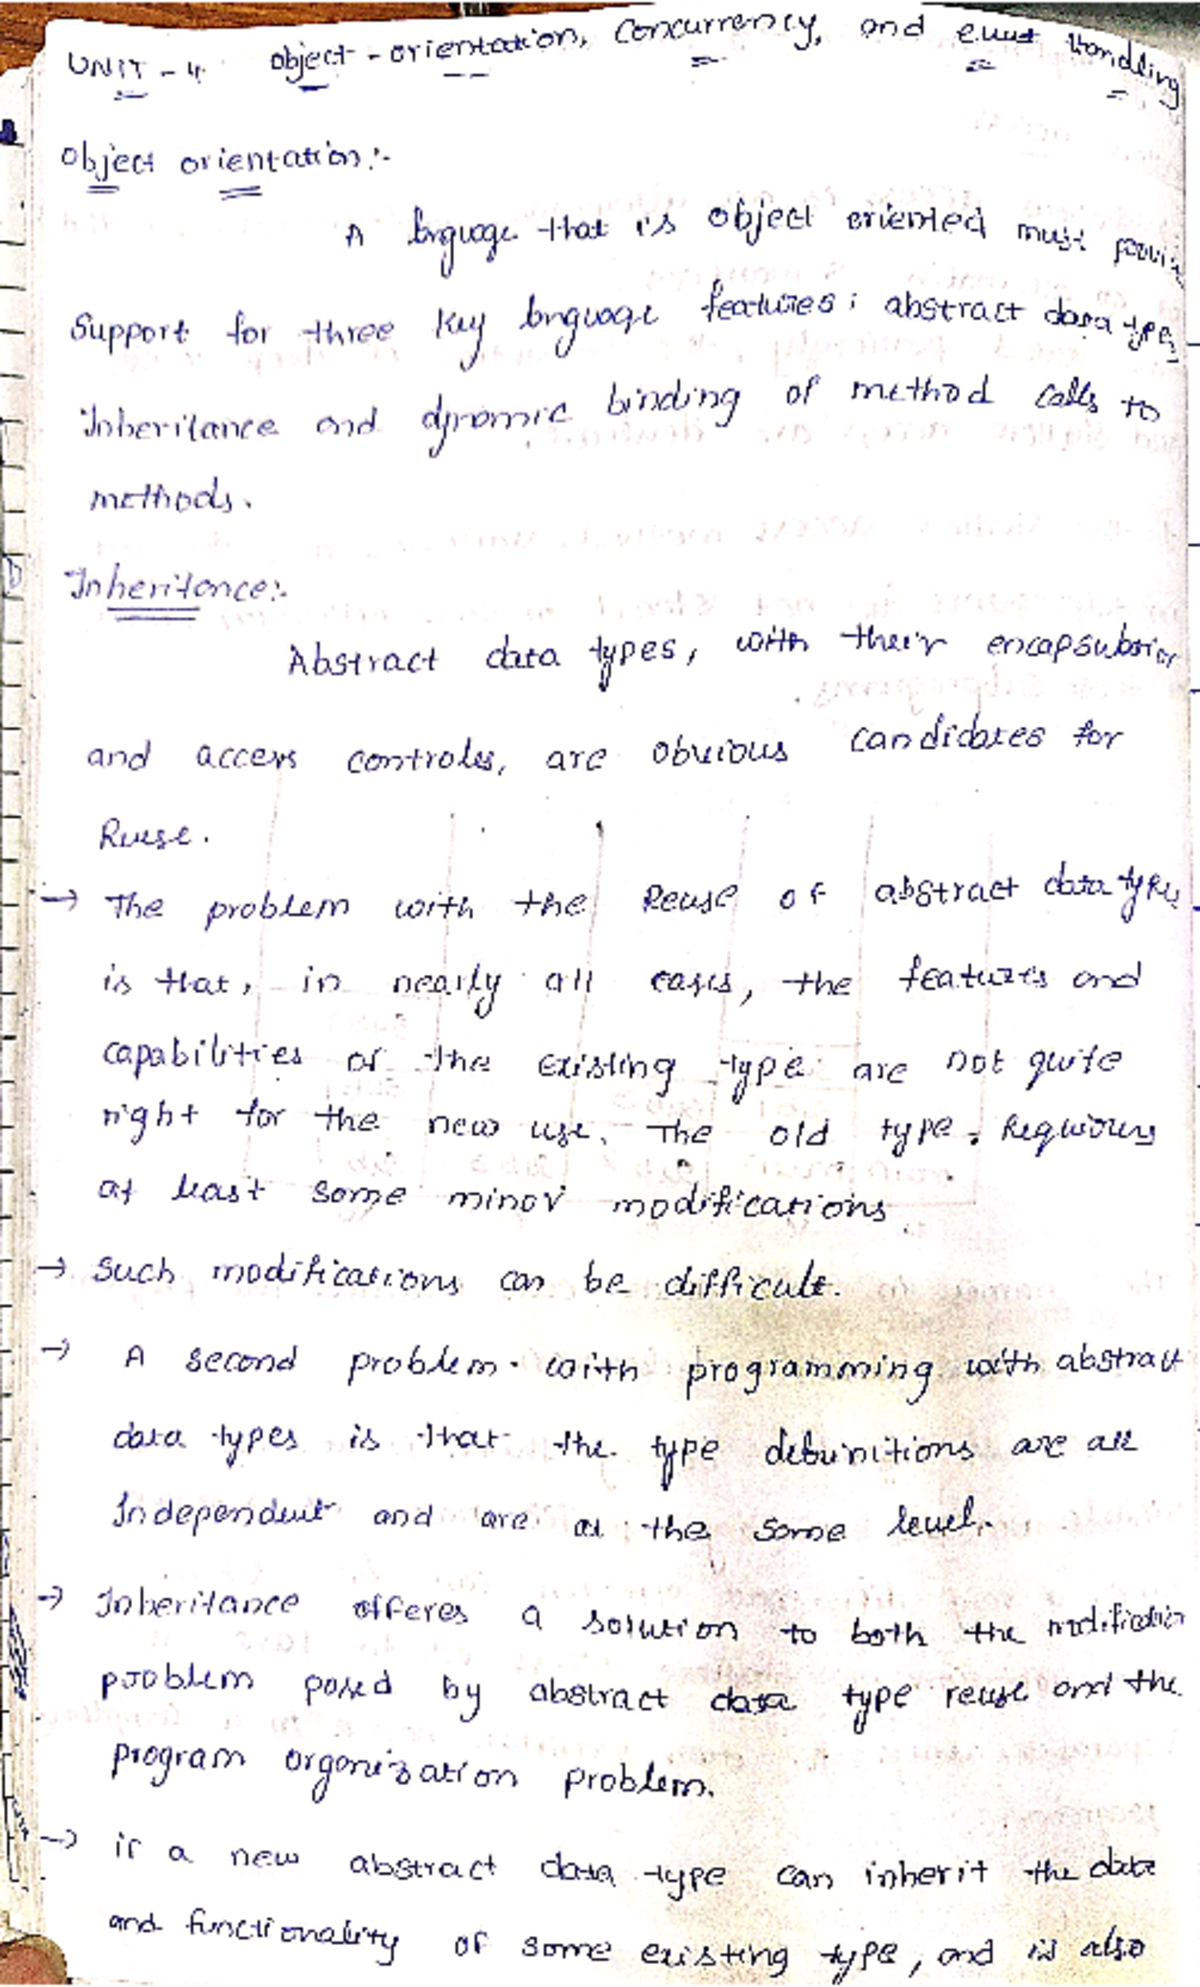 UNIT - 4 Object - orientation, Concurrency, and event Handling
Object orientation:-
A language that is object oriented must
Support for three key language features; abstract data types,
Inheritance and dynamic binding of method calls to
methods.
Inheritance:-
Abstract data types, with their encapsulation
and access controles, are obvious candidates for
Reuse.
→ The problem with the Reuse of abstract data types
is that, in nearly all cases, the features and
capabilities of the existing type are not quite
right for the new use. The old type.
at least some minor modifications
→ Such modifications can be difficult.
→ A second problem with programming with abstract
data types is that the type definitions are all
Independent and are at the same level.
→ Inheritance offeres a solution to both the modification
problem posed by abstract data type reuse and the
program organization problem.
→ if a new abstract data type can inherit the data
and functionality of some existing type, and is also